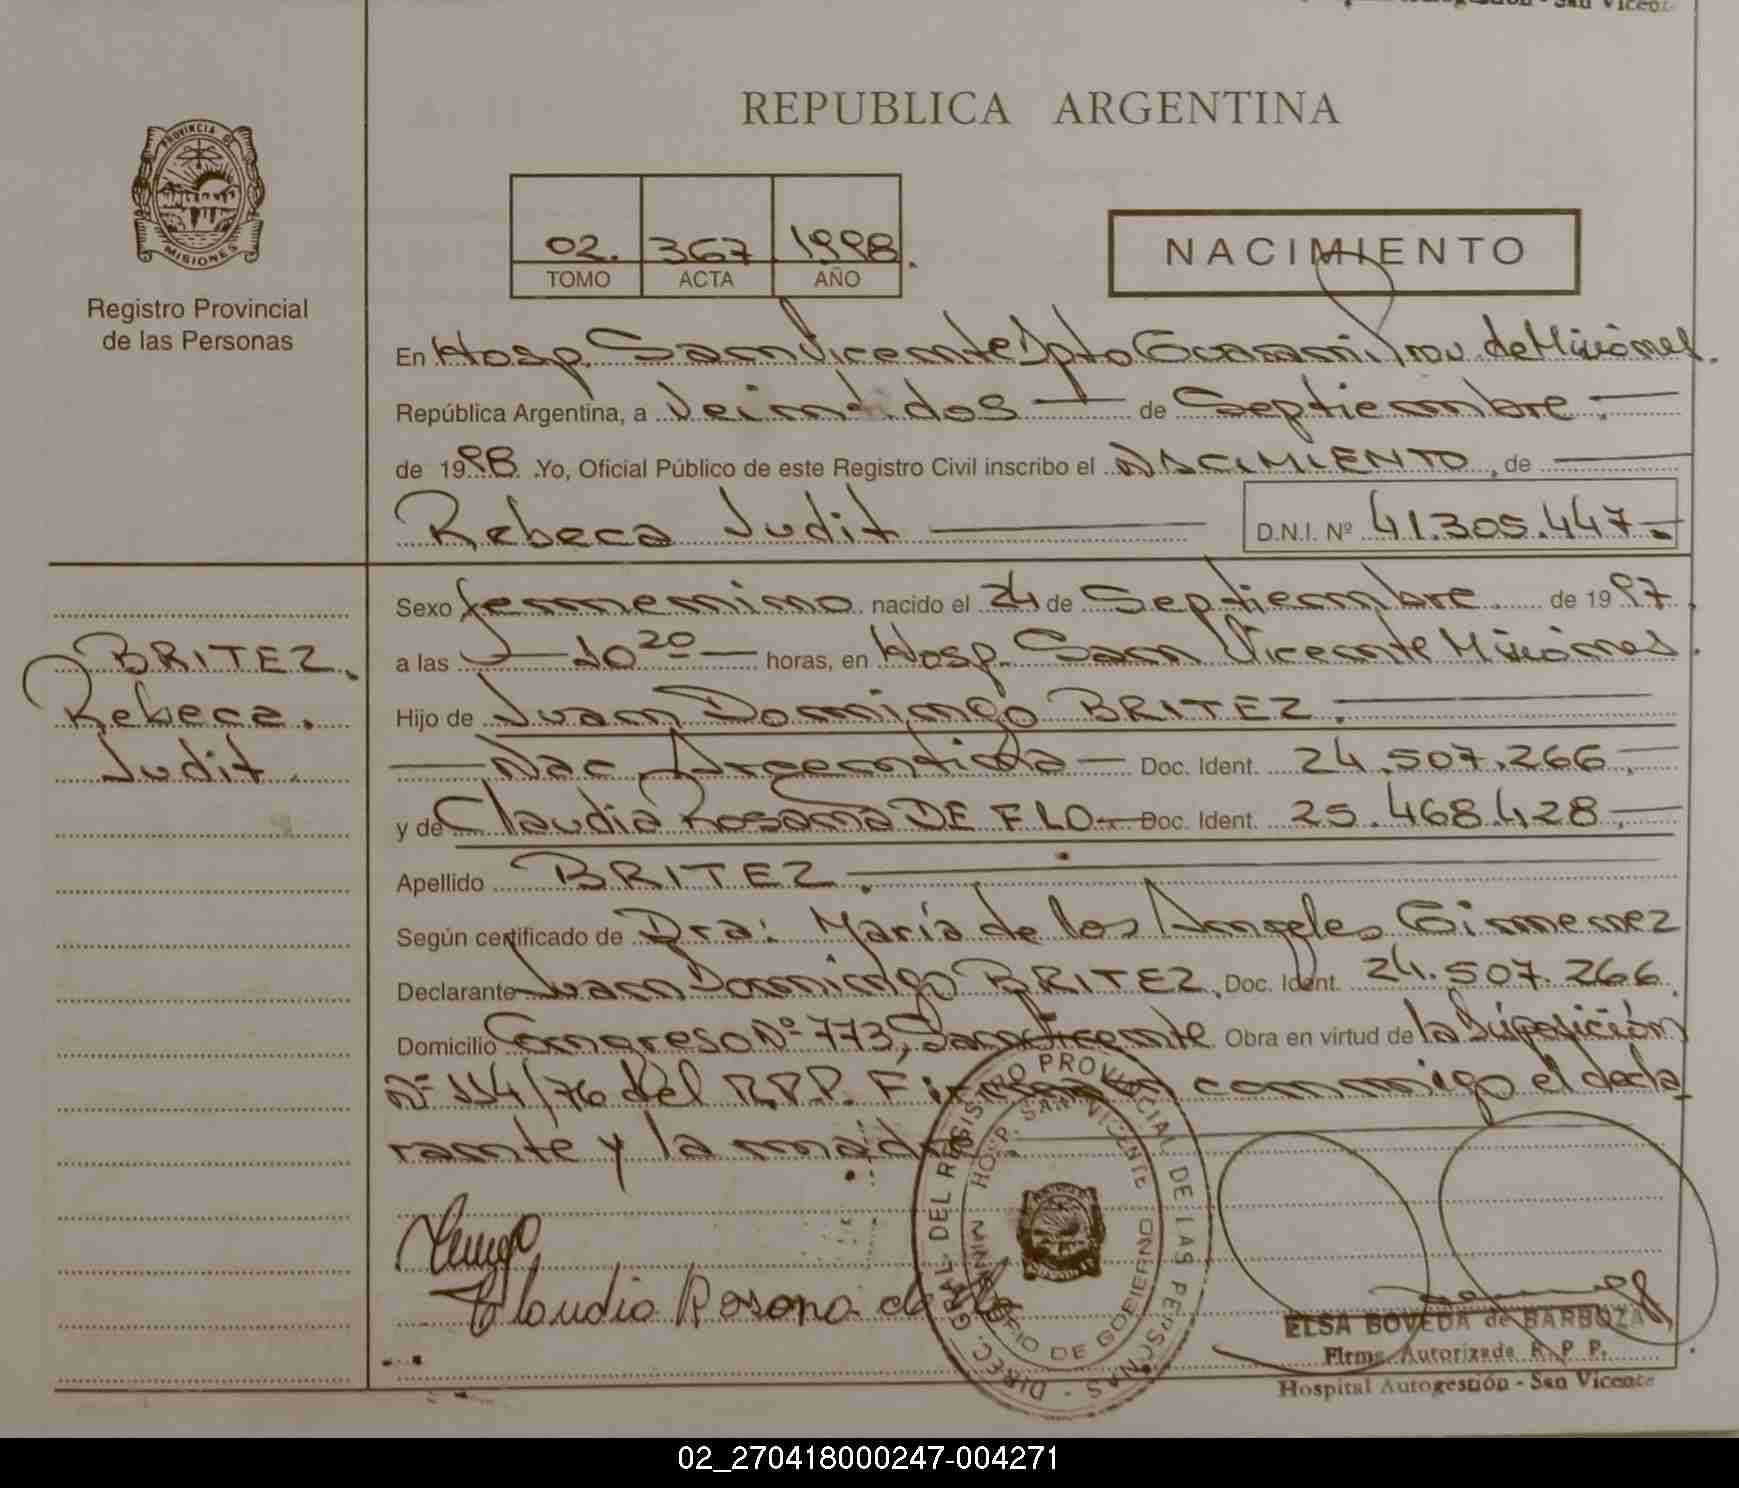 REPUBLICA ARGENTINA
PROVINCIA DE
MISIONES
Registro Provincial
de las Personas
02. 367 1998.
TOMO ACTA AÑO
NACIMIENTO
En Hosp. San Vicente Dpto Guarani Prov. de Misiones.
República Argentina, a Veintidos — de Septiembre.—
de 1998. Yo, Oficial Público de este Registro Civil inscribo el NACIMIENTO, de —
Rebeca Judit — D.N.I. Nº 41.305.447.-
BRITEZ.
Rebeca.
Judit.
Sexo femenino nacido el 24 de Septiembre de 1997.
a las — 10 20 — horas, en Hosp. San Vicente Misiones.
Hijo de Juan Domingo BRITEZ.—
— Nac. Argentina — Doc. Ident. 24.507.266.—
y de Claudia Rosana DE FLO — Doc. Ident. 25.468.428.—
Apellido BRITEZ.—
Según certificado de Dra: María de los Angeles Gimenez
Declarante Juan Domingo BRITEZ. Doc. Ident. 24.507.266.
Domicilio Congreso Nº 773, San Vicente Obra en virtud de la Disposición
Nº 114/76 del R.P.P. Firman conmigo el decla
rante y la madre.
Claudia Rosana de Flo
DIREC. GRAL. DEL REGISTRO PROVINCIAL DE LAS PERSONAS -
HOSP. SAN VICENTE
MINISTERIO DE GOBIERNO
ELSA BOVEDA de BARBOZA
Firma Autorizada R. P. P.
Hospital Autogestión - San Vicente
02_270418000247-004271